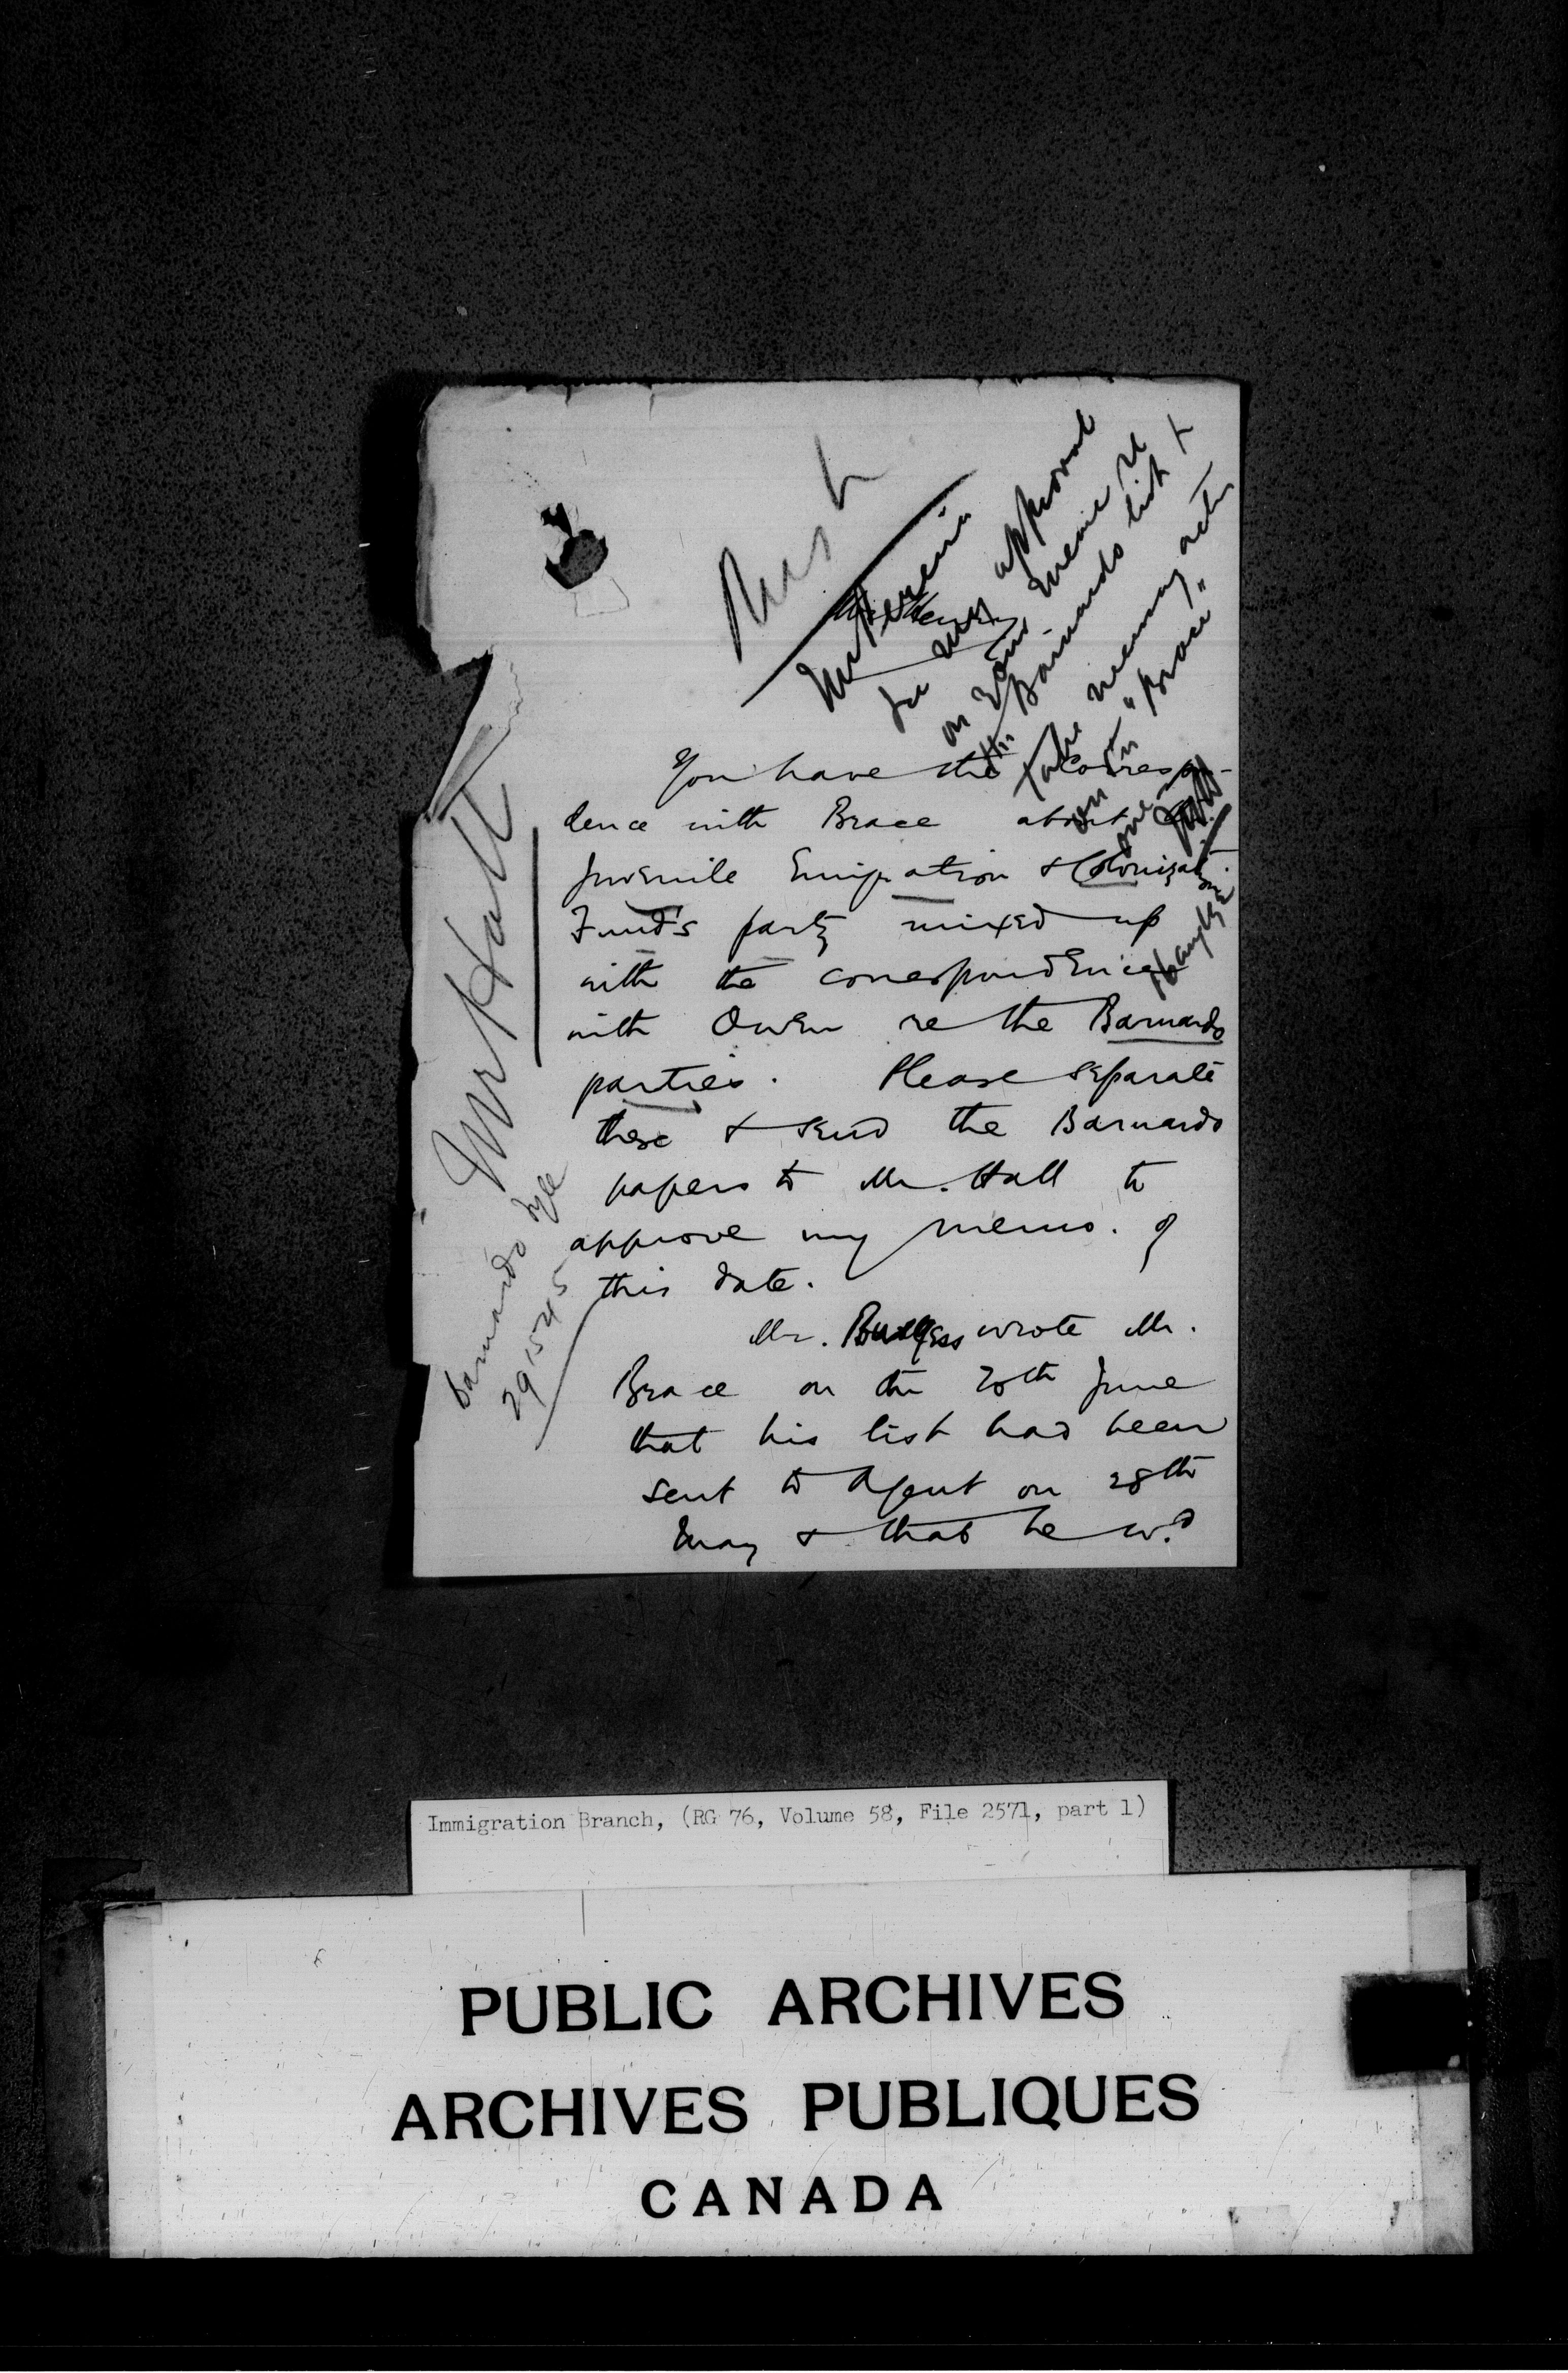 Rush
See my approval
on your memo re
the Barnardo list &
take necessary action
on "Brace"
one
You have the correspon-
dence with Brace about the
Juvenile Emigration & Colonization
Fund's party mixed up
with the correspondence
with Owen re the Barnardo
parties. Please separate
these & send the Barnardo
papers to Mr. Hall to
approve my memo. of
this date.
Mr. Burgess wrote Mr.
Brace on the 20th June
that his list had been
sent to Agent on 28th
May & that he wd.
Mr Hall
Barnardo file
291545
Immigration Branch, (RG 76, Volume 58, File 2571, part 1)
PUBLIC ARCHIVES
ARCHIVES PUBLIQUES
CANADA